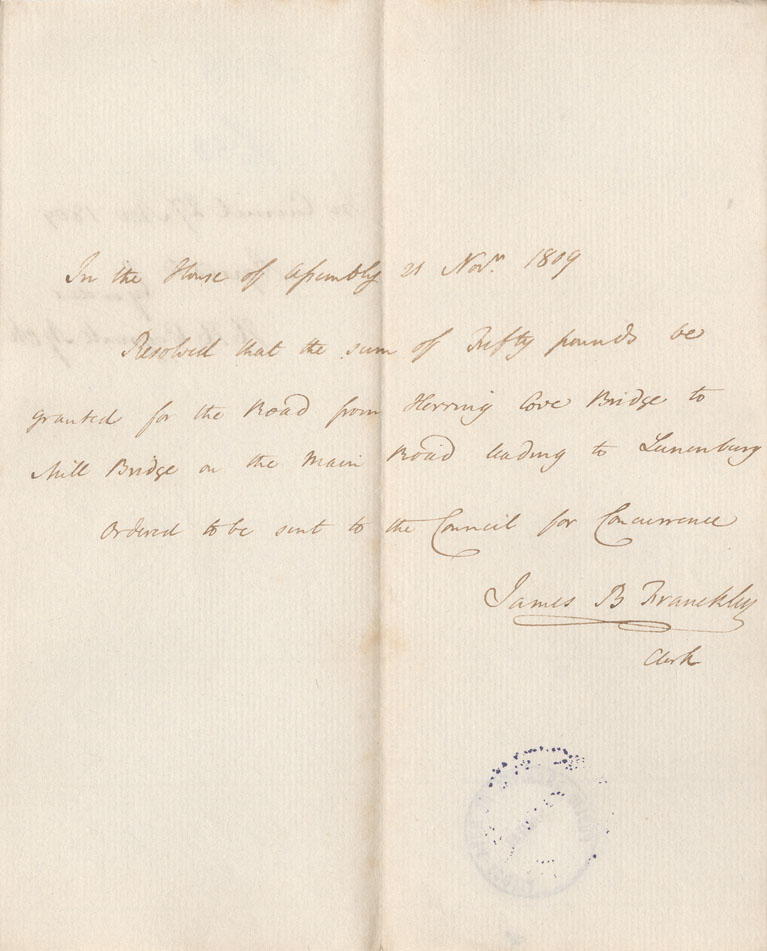 In the House of Assembly 21 Novr. 1809
Resolved that the sum of Fifty pounds be
granted for the Road from Herring Cove Bridge to
Mill Bridge on the Main Road leading to Lunenburg
Ordered to be sent to the Council for Concurrence
James B Franckley
Clerk